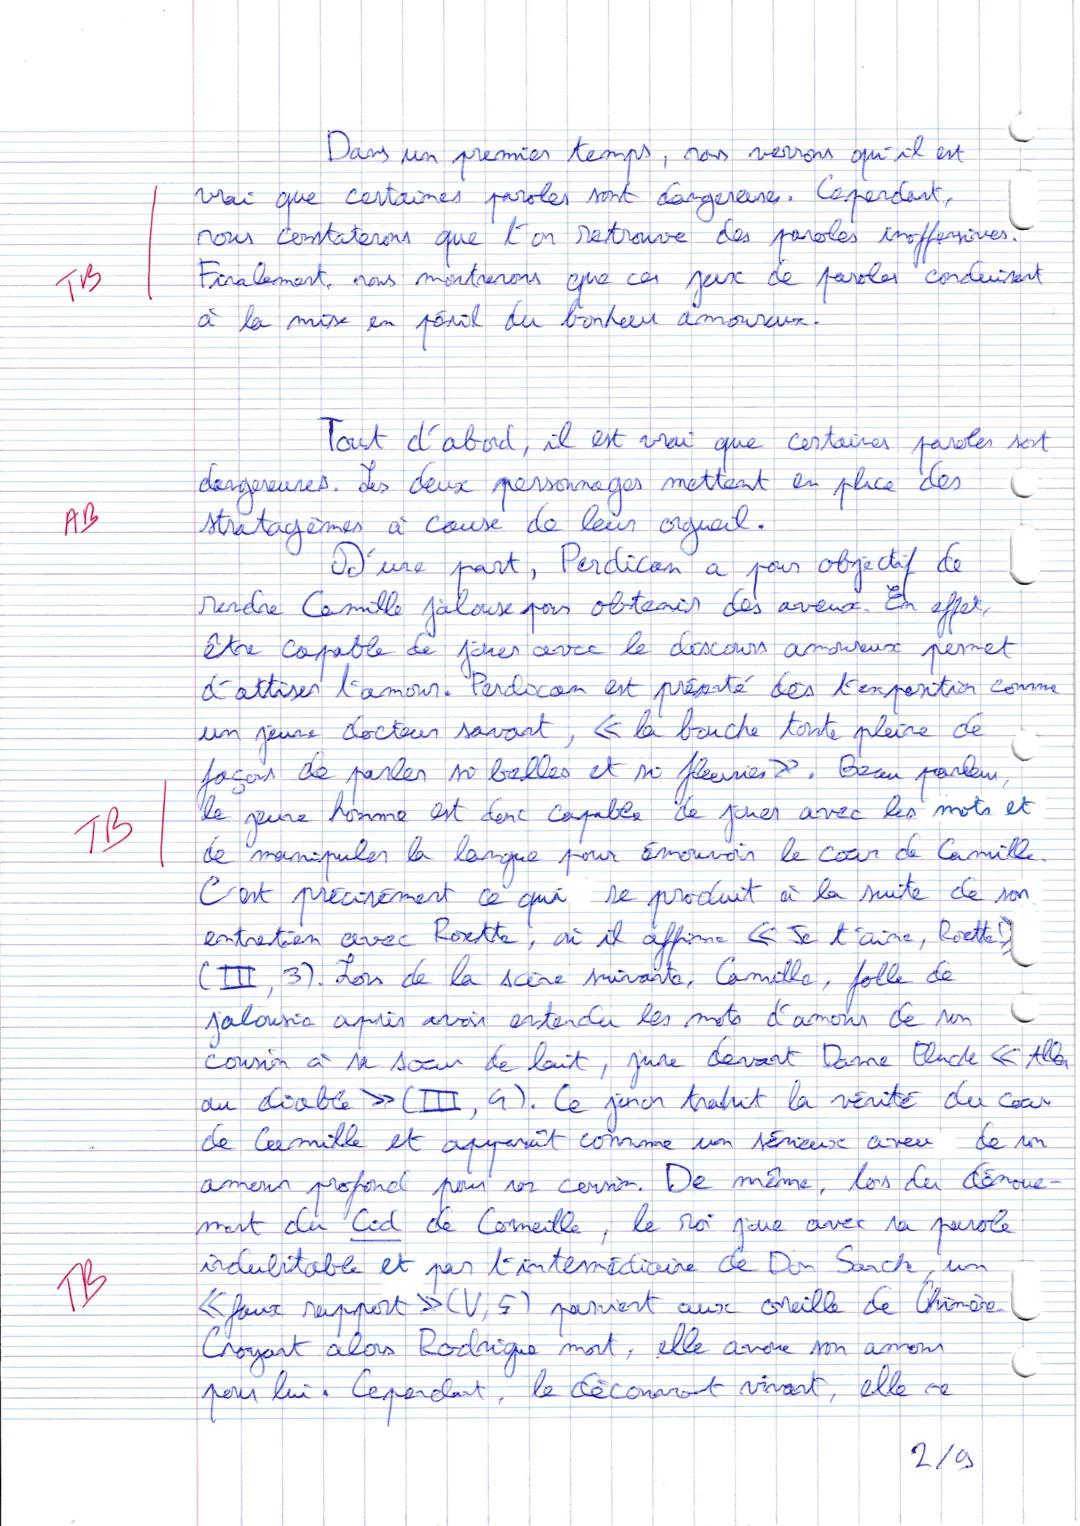 Dans un premier temps, nous verrons qu'il est
vrai que certaines paroles sont dangereuses. Cependant,
nous constaterons que l'on retrouve des paroles inoffensives.
TB
Finalement, nous montrerons que ces jeux de paroles conduisent
à la mise en péril du bonheur amoureux.
Tout d'abord, il est vrai que certaines paroles sont
dangereuses. Les deux personnages mettent en place des
AB
stratagèmes à cause de leur orgueil.
D'une part, Perdican a pour objectif de
rendre Camille jalouse pour obtenir des aveux. En effet,
être capable de jouer avec le discours amoureux permet
d'attiser l'amour. Perdican est présenté dès l'exposition comme
un jeune docteur savant, « la bouche toute pleine de
façons de parler si belles et si fleuries ». Beau parleur,
TB
le jeune homme est donc capable de jouer avec les mots et
de manipuler la langue pour émouvoir le cœur de Camille.
C'est précisément ce qui se produit à la suite de son
entretien avec Rosette, où il affirme « Je t'aime, Rosette! »
(III, 3). Lors de la scène suivante, Camille, folle de
jalousie après avoir entendu les mots d'amour de son
cousin à sa sœur de lait, jure devant Dame Pluche « Allez
au diable » (III, 4). Ce juron traduit la vérité du cœur
de Camille et apparaît comme un sérieux aveu de son
amour profond pour son cousin. De même, lors du dénoue-
ment du Cid de Corneille, le roi joue avec sa parole
TB
indubitable et par l'intermédiaire de Don Sanch, un
« faux rapport » (V, 5) parvient aux oreille de Chimène.
Croyant alors Rodrigue mort, elle avoue son amour
pour lui. Cependant, le découvrant vivant, elle se
2/9